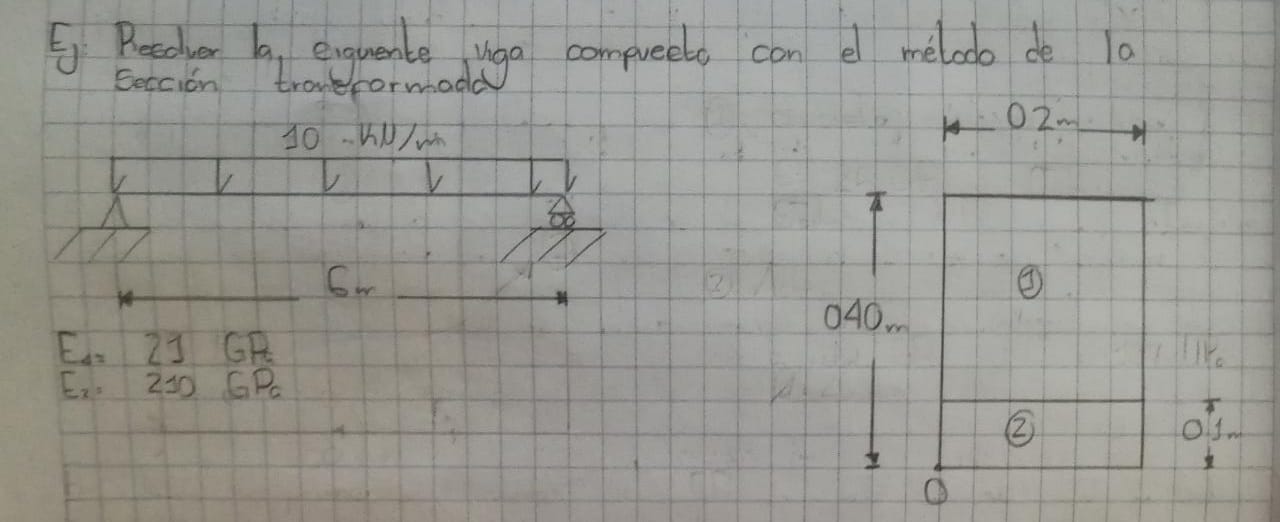 Ej: Resolver la siguiente viga compuesta con el método de la
Sección transformada
10 kN/m
0.2m
6m
①
040m
E1= 21 GPa
E2= 210 GPa
②
0.1m
0